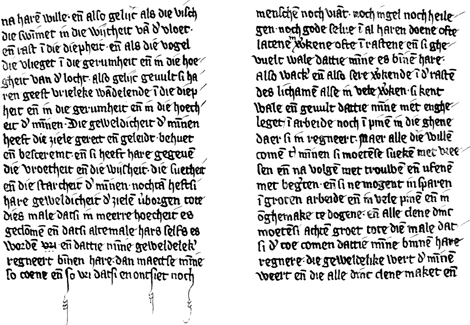 na harē wille · eñ also gelijc als die visch
die swimet in die wijtheit vā d' vloet ·
eñ rast ī die diepheit · eñ als die vogel
die vlieget ī die gerumheit eñ in die hoe
gheit van d' locht · also gelijc geuult si ha
ren geest vrieleke wādelende ī die diep
heit eñ in die gerumheit eñ in die hoech
eit d' mīnen · Die geweldicheit d' mīnen
heeft die ziele geret eñ geleidt · behuet
eñ bescermt · eñ si heeft hare gegeuē
die vroetheit eñ die wijsheit · die suetheit
eñ die starcheit d' mīnen · nochtā heeftsi
hare geweldicheit d' zielen v'borgen tote
dies male dat si in meerre hoecheit es
geclōmē eñ dat si altemale hars selfs es
wordē vri eñ dattie mīne geweldelek'
regneert binen hare · dan maectse mīne
so coene eñ so vri dat si en ontsiet noch
menschen noch viāt · noch īngel noch heile
gen · noch gode selue ī al haren doene ofte
latene w'kene ofte ī rastene eñ si ghe
vuelt wale dattie mīne es bīnē hare ·
also wack' eñ also sere w'kende ī d' rastē
des lichamē alse in vele w'kē · si kent
wale eñ geuult dattie mīne met enghe
leget ī arbeide noch ī pīne in die ghene
daer si in regneert · Maer alle die willē
come t' mīnen si moetēse sueken met vree
sen · eñ na volgē met trouwē eñ ufene
met beg'ten · eñ si ne mogent īn sparen
ī groten arbeide eñ in vele pīnē eñ in
oghemake te dogene · eñ alle clene dinc
moetēsi achtē groet tote die male dat
si d' toe comen dattie mīne binnē hare
regnere · die geweldelike wert d' mīnē
weert eñ die alle dinc clene maket eñ